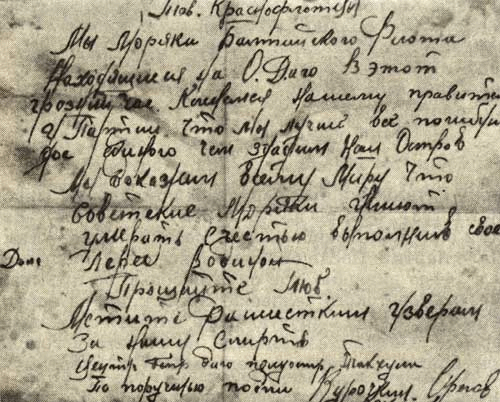 Тов. Краснофлотцы
Мы моряки Балтийского Флота
Находящиеся на О. Даго В этот
грозный час. Клянемся нашему правите
и Партии что мы лучше все погибн
до единого чем здадим наш Остров
Мы докажем всему Миру что
советские Моряки умеют
умерать с честью выполнив свое
Долг Перед Родиной
Прощайте тов.
Мстите Фашистким изверам
За нашу Смерть
По поручению Курочкин. Орлов